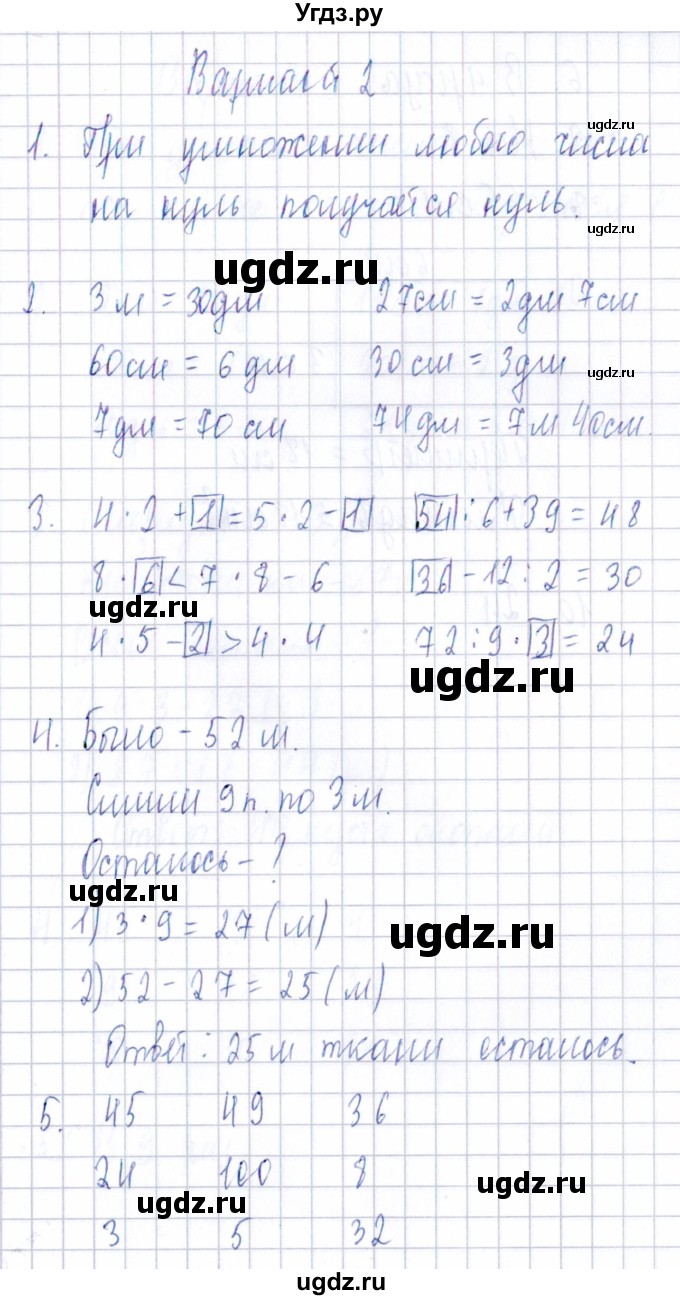 Угдз.ру
Вариант 2
ugdz.ru
1. При умножении любого числа
на нуль получается нуль.
ugdz.ru
ugdz.ru
2. 3 м = 30 дм 27 см = 2 дм 7 см
60 см = 6 дм 30 см = 3 дм
ugdz.ru
7 дм = 70 см 74 дм = 7 м 40 см.
3. 4 · 2 + 1 = 5 · 2 - 1 54 : 6 + 39 = 48
8 · 6 < 7 · 8 - 6 36 - 12 : 2 = 30
ugdz.ru
4 · 5 - 2 > 4 · 4 72 : 9 · 3 = 24
ugdz.ru
4. Было - 52 м.
Сшили 9 п. по 3 м.
Осталось - ?
ugdz.ru
1) 3 · 9 = 27 (м)
ugdz.ru
2) 52 - 27 = 25 (м)
Ответ: 25 м ткани осталось.
5. 45 49 36
24 100 8
ugdz.ru
ugdz.ru
3 5 32
ugdz.ru